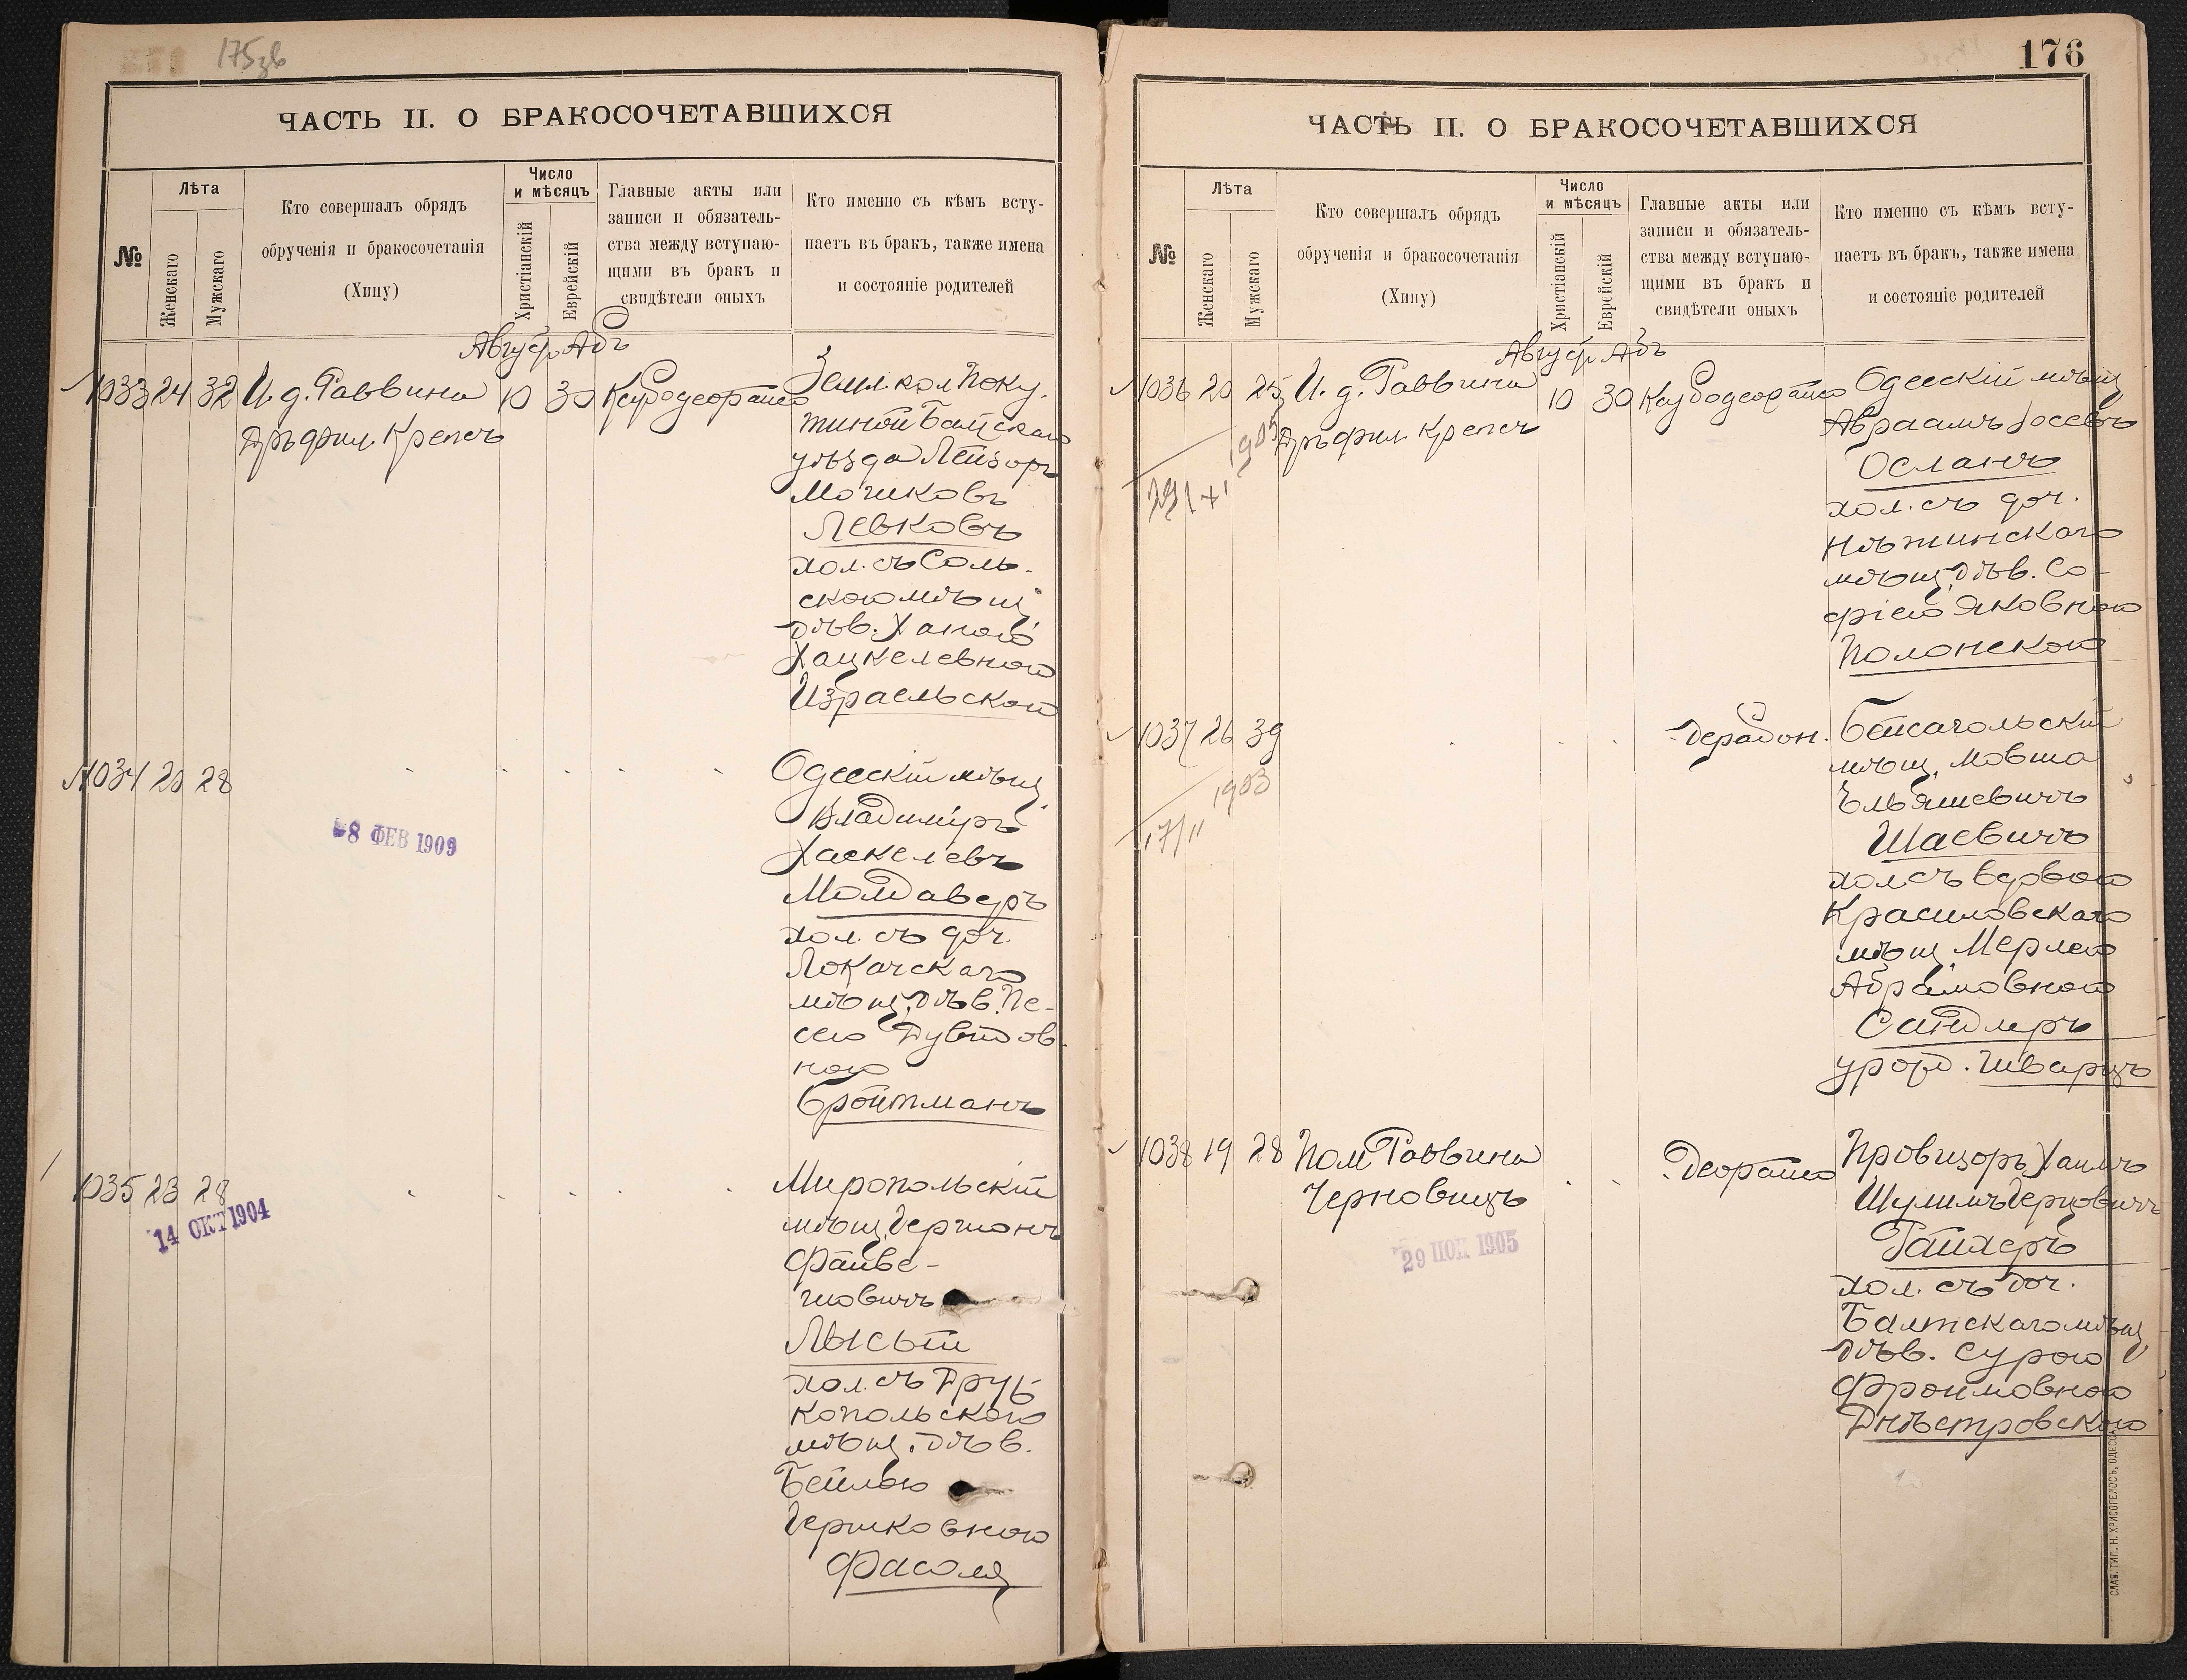 175 зв
ЧАСТЬ II. О БРАКОСОЧЕТАВШИХСЯ
№
Лѣта
Женскаго
Мужскаго
Кто совершалъ обрядъ
обрученія и бракосочетанія
(Хипу)
Число
и мѣсяцъ
Христіанскій
Еврейскій
Главные акты или
записи и обязатель-
ства между вступаю-
щими въ бракъ и
свидѣтели оныхъ
Кто именно съ кѣмъ всту-
паетъ въ бракъ, также имена
и состояніе родителей
Август Абъ
1033 24 32 И. д. Раввина 10 30
Дръ фил. Крепсъ
уѣзда Лейзоръ
Мошковъ
Левковъ
хол. съ Соль-
скою мѣщ.
дѣв. Ханою
Хацкелевною
Израельской
1034 20 28
8 ФЕВ 1909
Одесскій мѣщ.
Владиміръ
Хаскелевъ
Молдаверъ
хол. съ доч.
Локачскаго
мѣщ. дѣв. Пе-
сею Дувидов-
ною
Бройтманъ
1035 23 28
14 ОКТ 1904
Миропольскій
мѣщ. Гершонъ
Файве-
шовичъ
Лысый
хол. съ Друж-
копольскою
мѣщ. дѣв.
Бейлею
Гершковною
Фасоля
176
ЧАСТЬ II. О БРАКОСОЧЕТАВШИХСЯ
№
Лѣта
Женскаго
Мужскаго
Кто совершалъ обрядъ
обрученія и бракосочетанія
(Хипу)
Число
и мѣсяцъ
Христіанскій
Еврейскій
Главные акты или
записи и обязатель-
ства между вступаю-
щими въ бракъ и
свидѣтели оныхъ
Кто именно съ кѣмъ всту-
паетъ въ бракъ, также имена
и состояніе родителей
Август Абъ
1036 20 25 И. д. Раввина 10 30
Дръ фил. Крепсъ
Одесскій мѣщ.
Авраамъ Іосевъ
Осланъ
хол. съ доч.
Нѣжинскаго
мѣщ. дѣв. Со-
фіею Яковною
Полонскою
1037 26 39
17/II 1903
Бейсагольскій
мѣщ. Мовша
Ельяшевичъ
Шаевичъ
хол. съ вдовою
Красиловскаго
мѣщ. Мерлею
Абрамовною
Сандлеръ
урожд. Шварцъ
1038 19 28 Пом. Раввина
Черновицъ
29 НОЯ 1905
Провизоръ Хаимъ
Шулимъ Герцовичъ
Гайхеръ
хол. съ доч.
Балтскаго мѣщ.
дѣв. Сурою
Фроимовною
Днѣстровскою
СЛАВ. ТИП. Н. ХРИСОГЕЛОСЪ, ОДЕССА